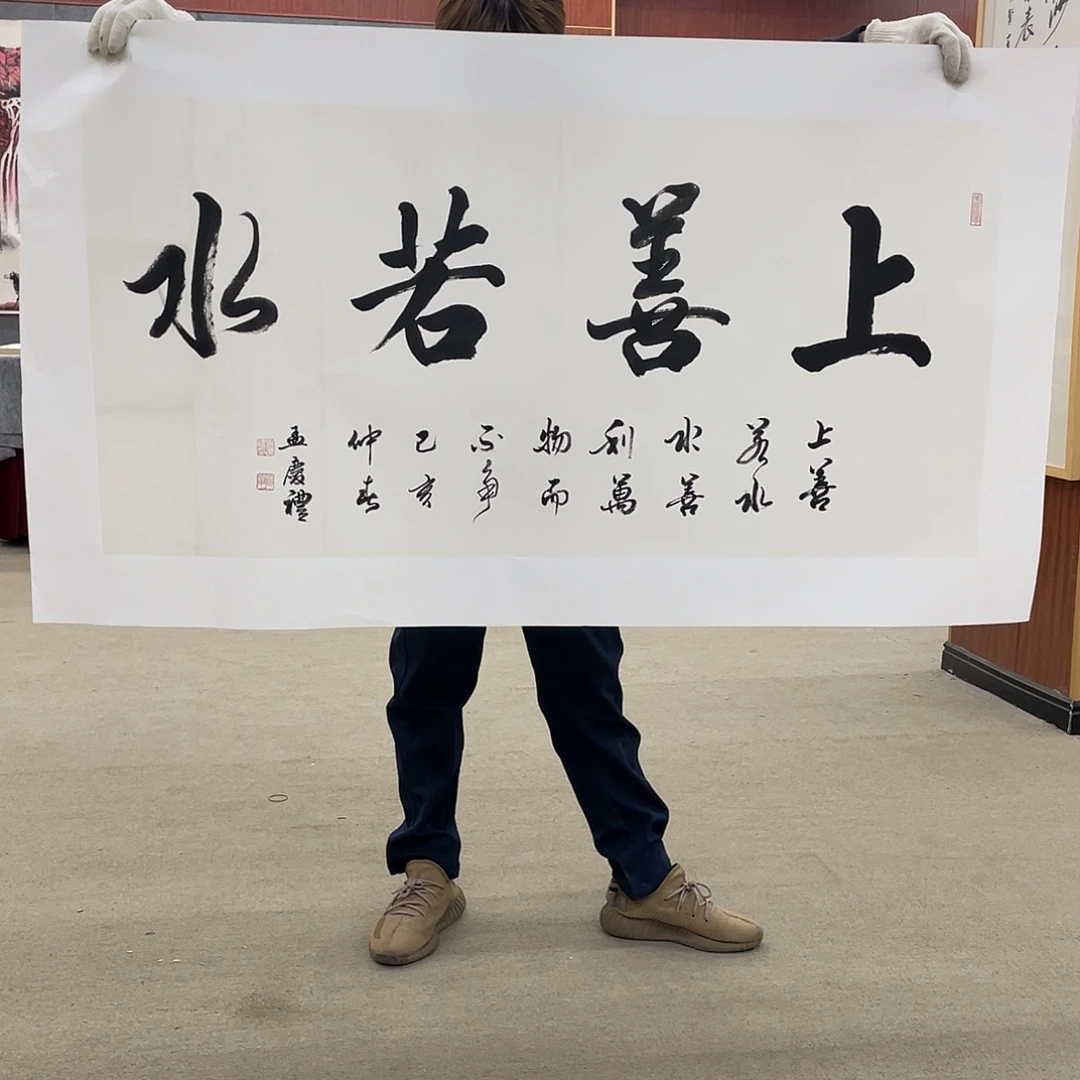 上善若水
上善
若水
水善
利萬
物而
不争
己亥
仲春
孟慶禮